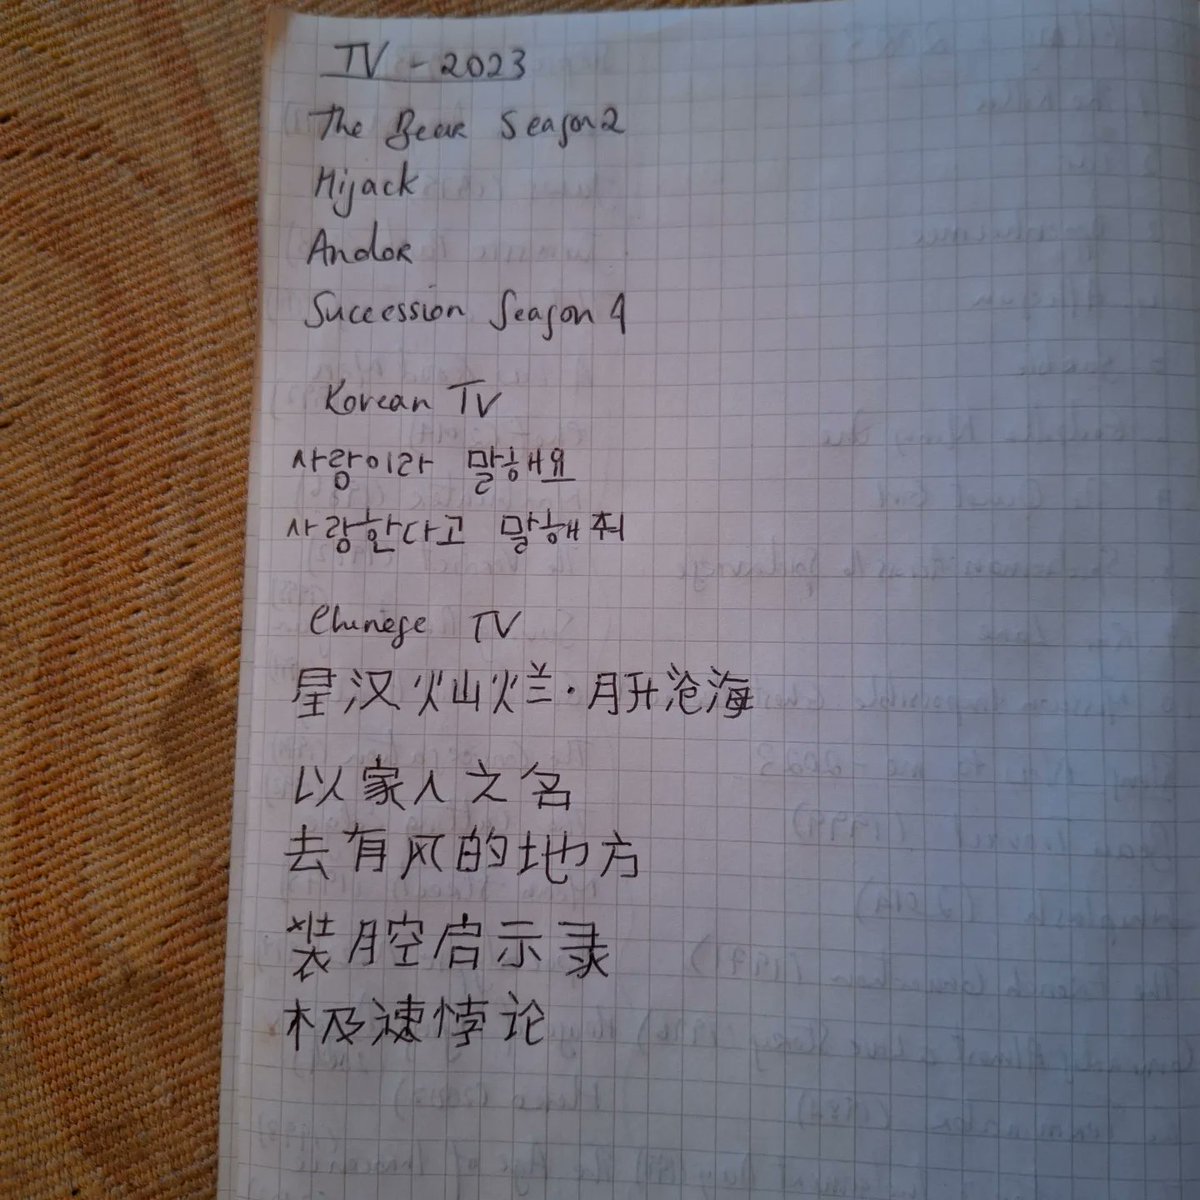 TV - 2023
The Bear Season 2
Hijack
Andor
Succession Season 4
Korean TV
사랑이라 말해요
사랑한다고 말해줘
Chinese TV
星汉灿烂·月升沧海
以家人之名
去有风的地方
装腔启示录
极速悖论